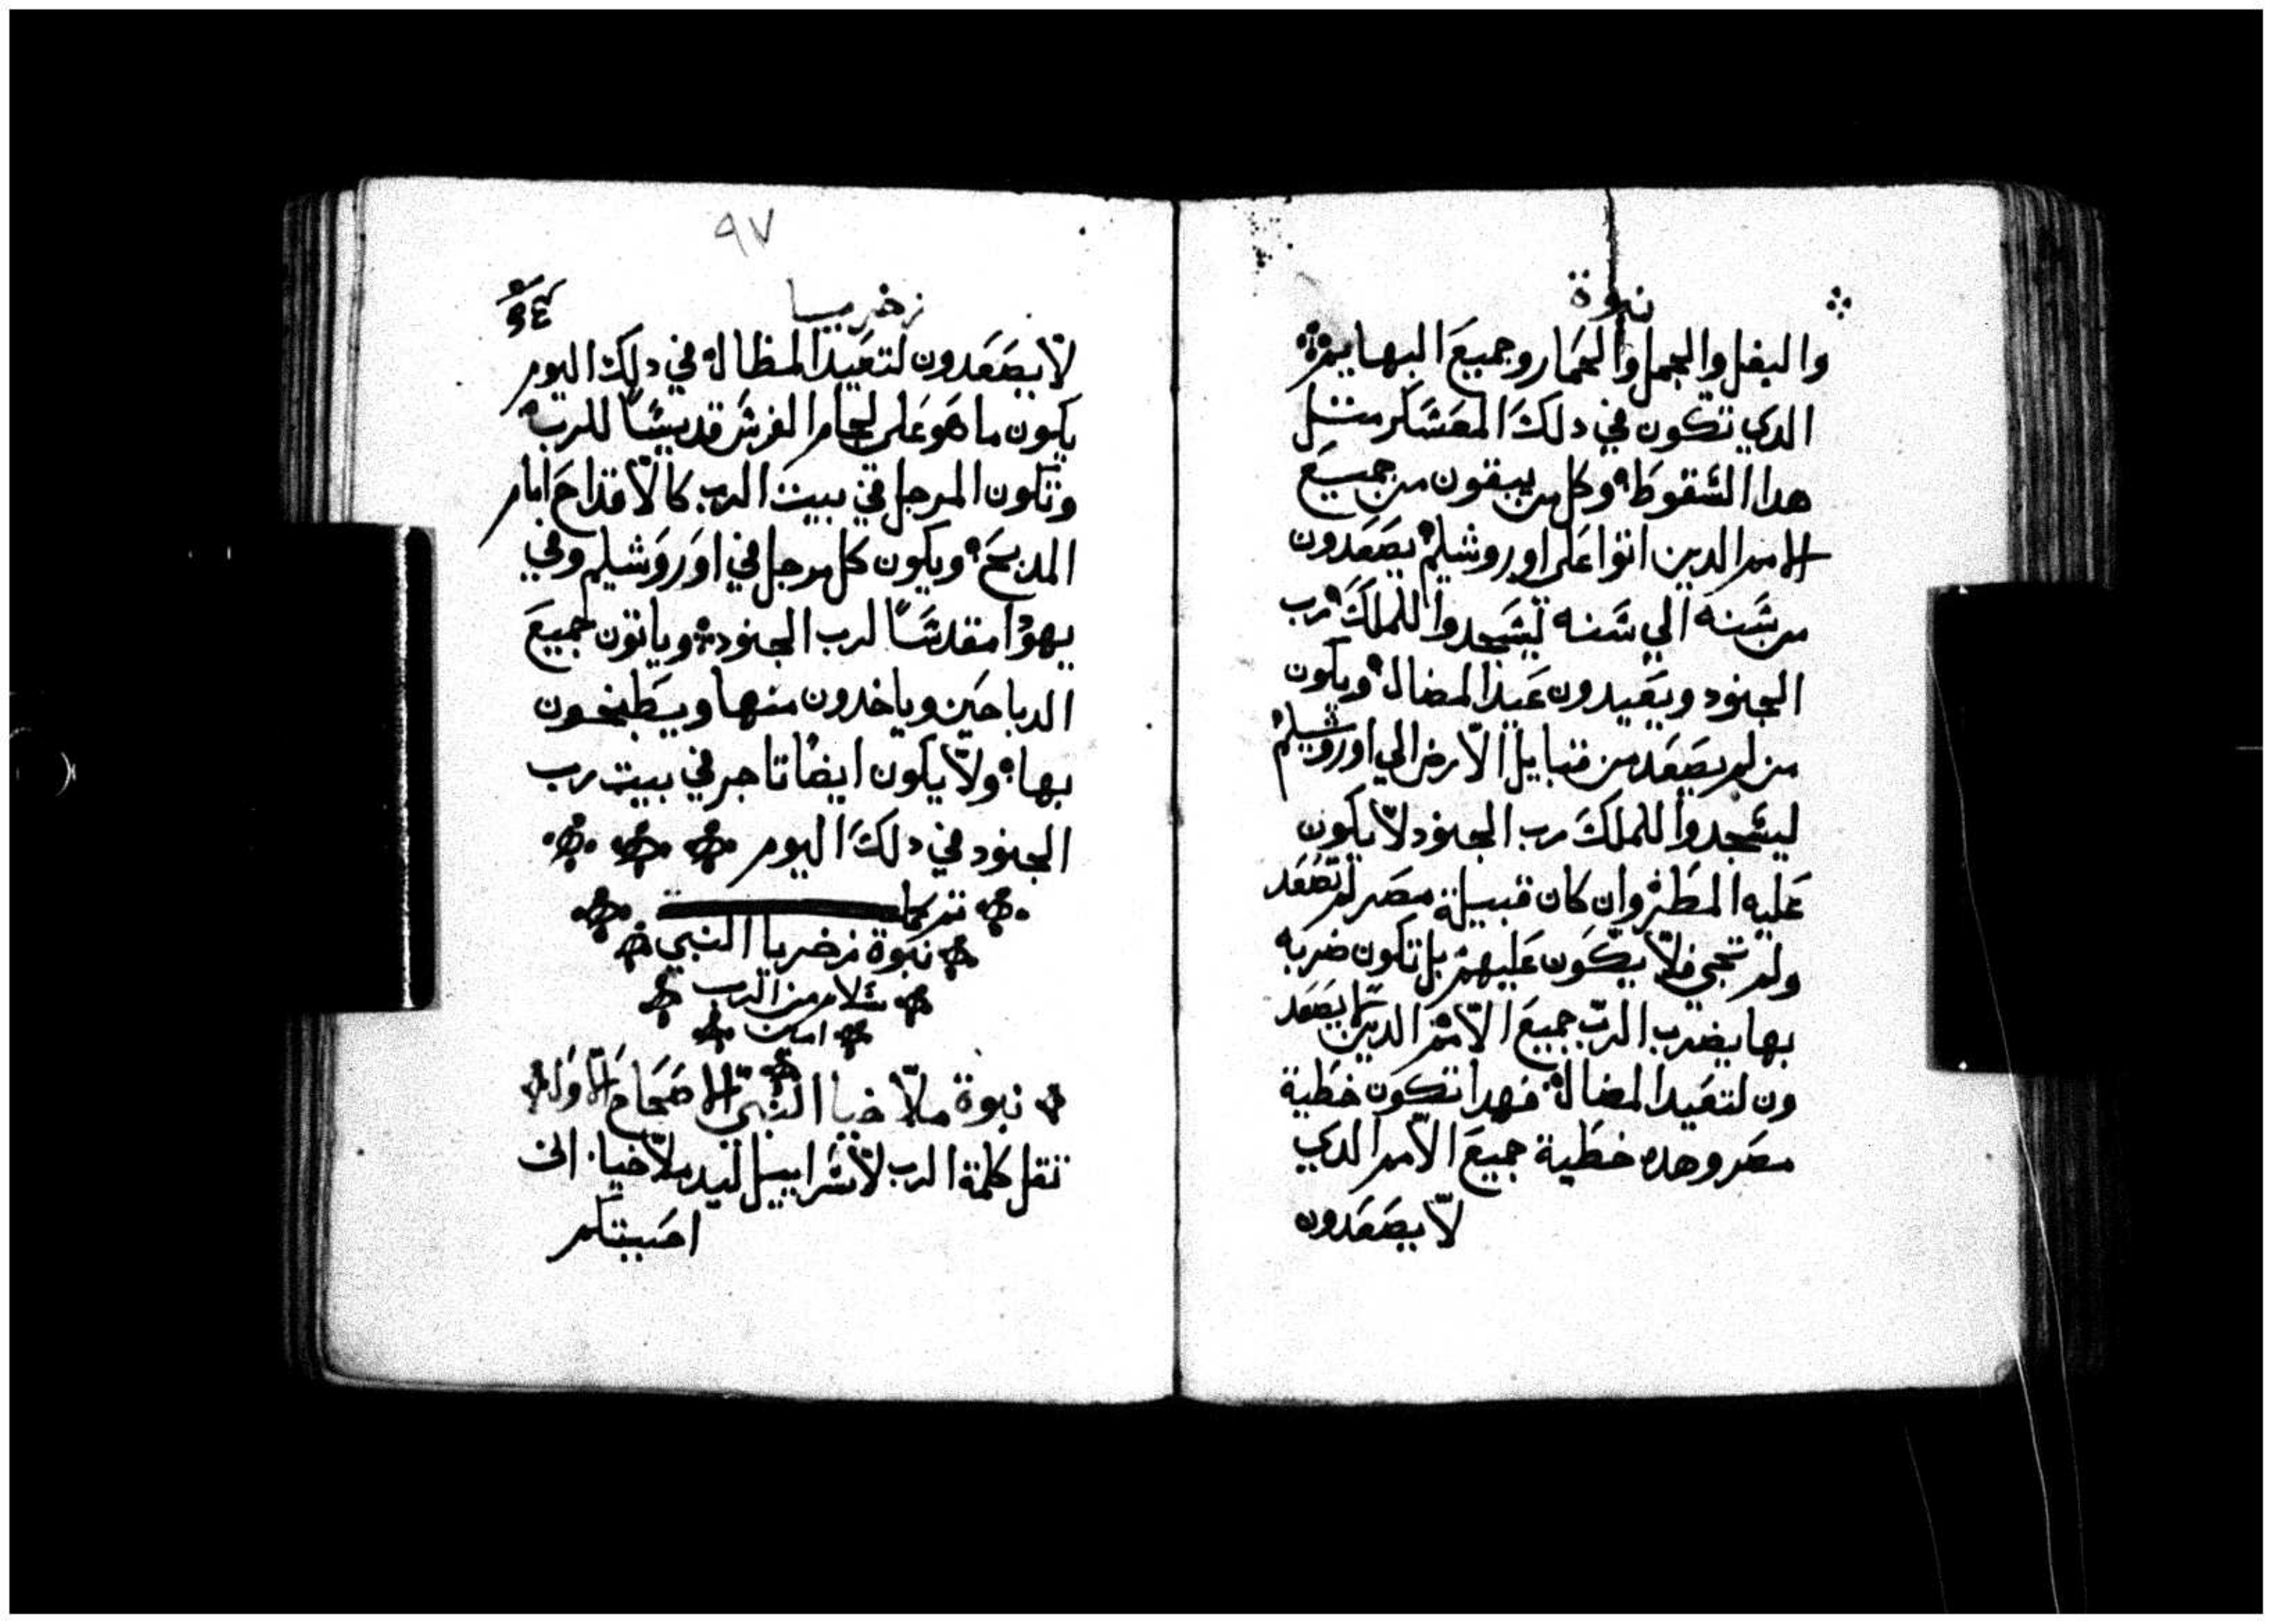 نبوة
والبغل والجمل والحمار وجميع البهايم
الدي تكون في دلك المعشكر متل
هدا الشقوط وكل من يبقون من جميع
الامم الدين اتوا على اوروشليم يصعدون
من شنه الي شنه ليشجدوا للملك رب
الجنود ويعيدون عيد المضال ويكون
من لم يصعد من قبايل الارض الي اوروشليم
ليشجدوا للملك رب الجنود لا يكون
عليه المطر وان كان قبيلة مصر لم تصعد
ولم تجي فلا يكون عليهم بل تكون ضربه
بها يضرب الرب جميع الامم الدين لا يصعد
ون لتعيد المضال فهدا تكون خطية
مصر وهده خطية جميع الامم الدي
لا يصعدون
٩٧
زخريا
لا يصعدون لتعيد المظال في دلك اليوم
يكون ما هو على لجام الفرش قديشًا للرب
وتكون المرجل في بيت الرب كالاقداح امام
المدبح ويكون كل مرجل في اوروشليم وفي
يهودا مقدشًا لرب الجنود وياتون جميع
الدباحين وياخدون منها ويطبخون
بها ولا يكون ايضًا تاجر في بيت رب
الجنود في دلك اليوم
تم كما
نبوة زخريا النبي
شلام من الرب
امين
نبوة ملاخيا النبي الاصحاح الاول
تقل كلمة الرب لاشراييل ليد ملاخيا اني
احببتكم